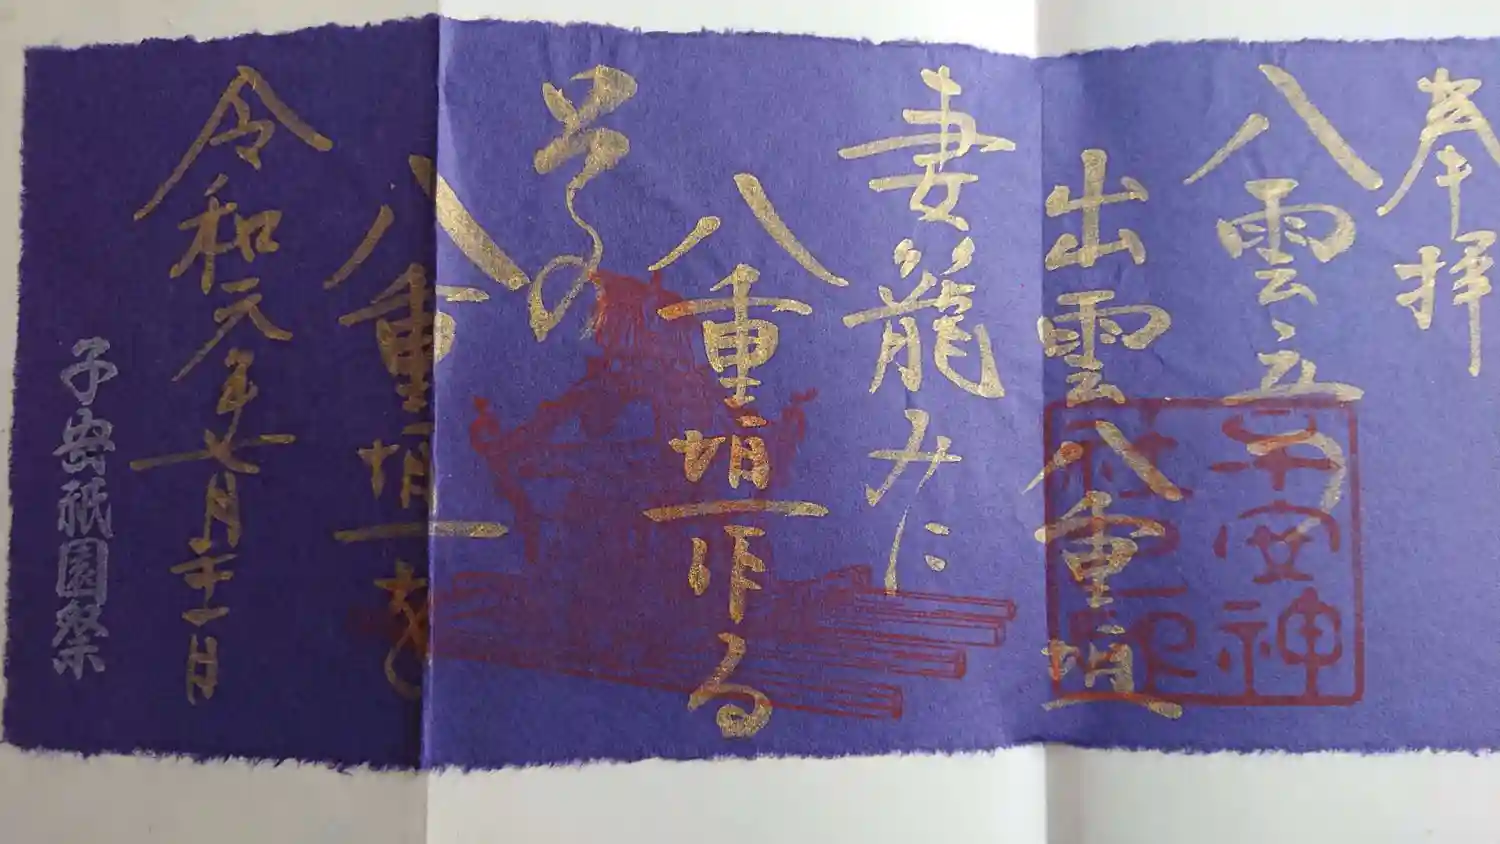 奉拝
八雲立つ
出雲八重垣
妻籠みに
八重垣作る
その
八重垣を
令和元年七月二十一日
子安祇園祭
子安神
社之印